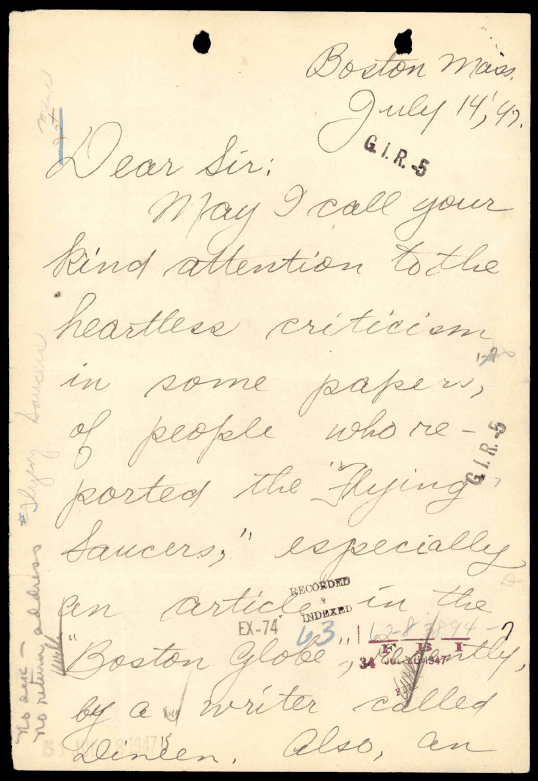 Boston Mass.
July 14, 47.
G.I.R.-5
Dear Sir:
May I call your
kind attention to the
heartless criticism
in some papers,
of people who re-
ported the "Flying
Saucers," especially
an article in the
"Boston Globe", recently,
by a writer called
Dineen. Also, an
G.I.R.-5
RECORDED
&
INDEXED
EX-74
63
F B I
34
1947
Flying Saucers
no ack -
no return address